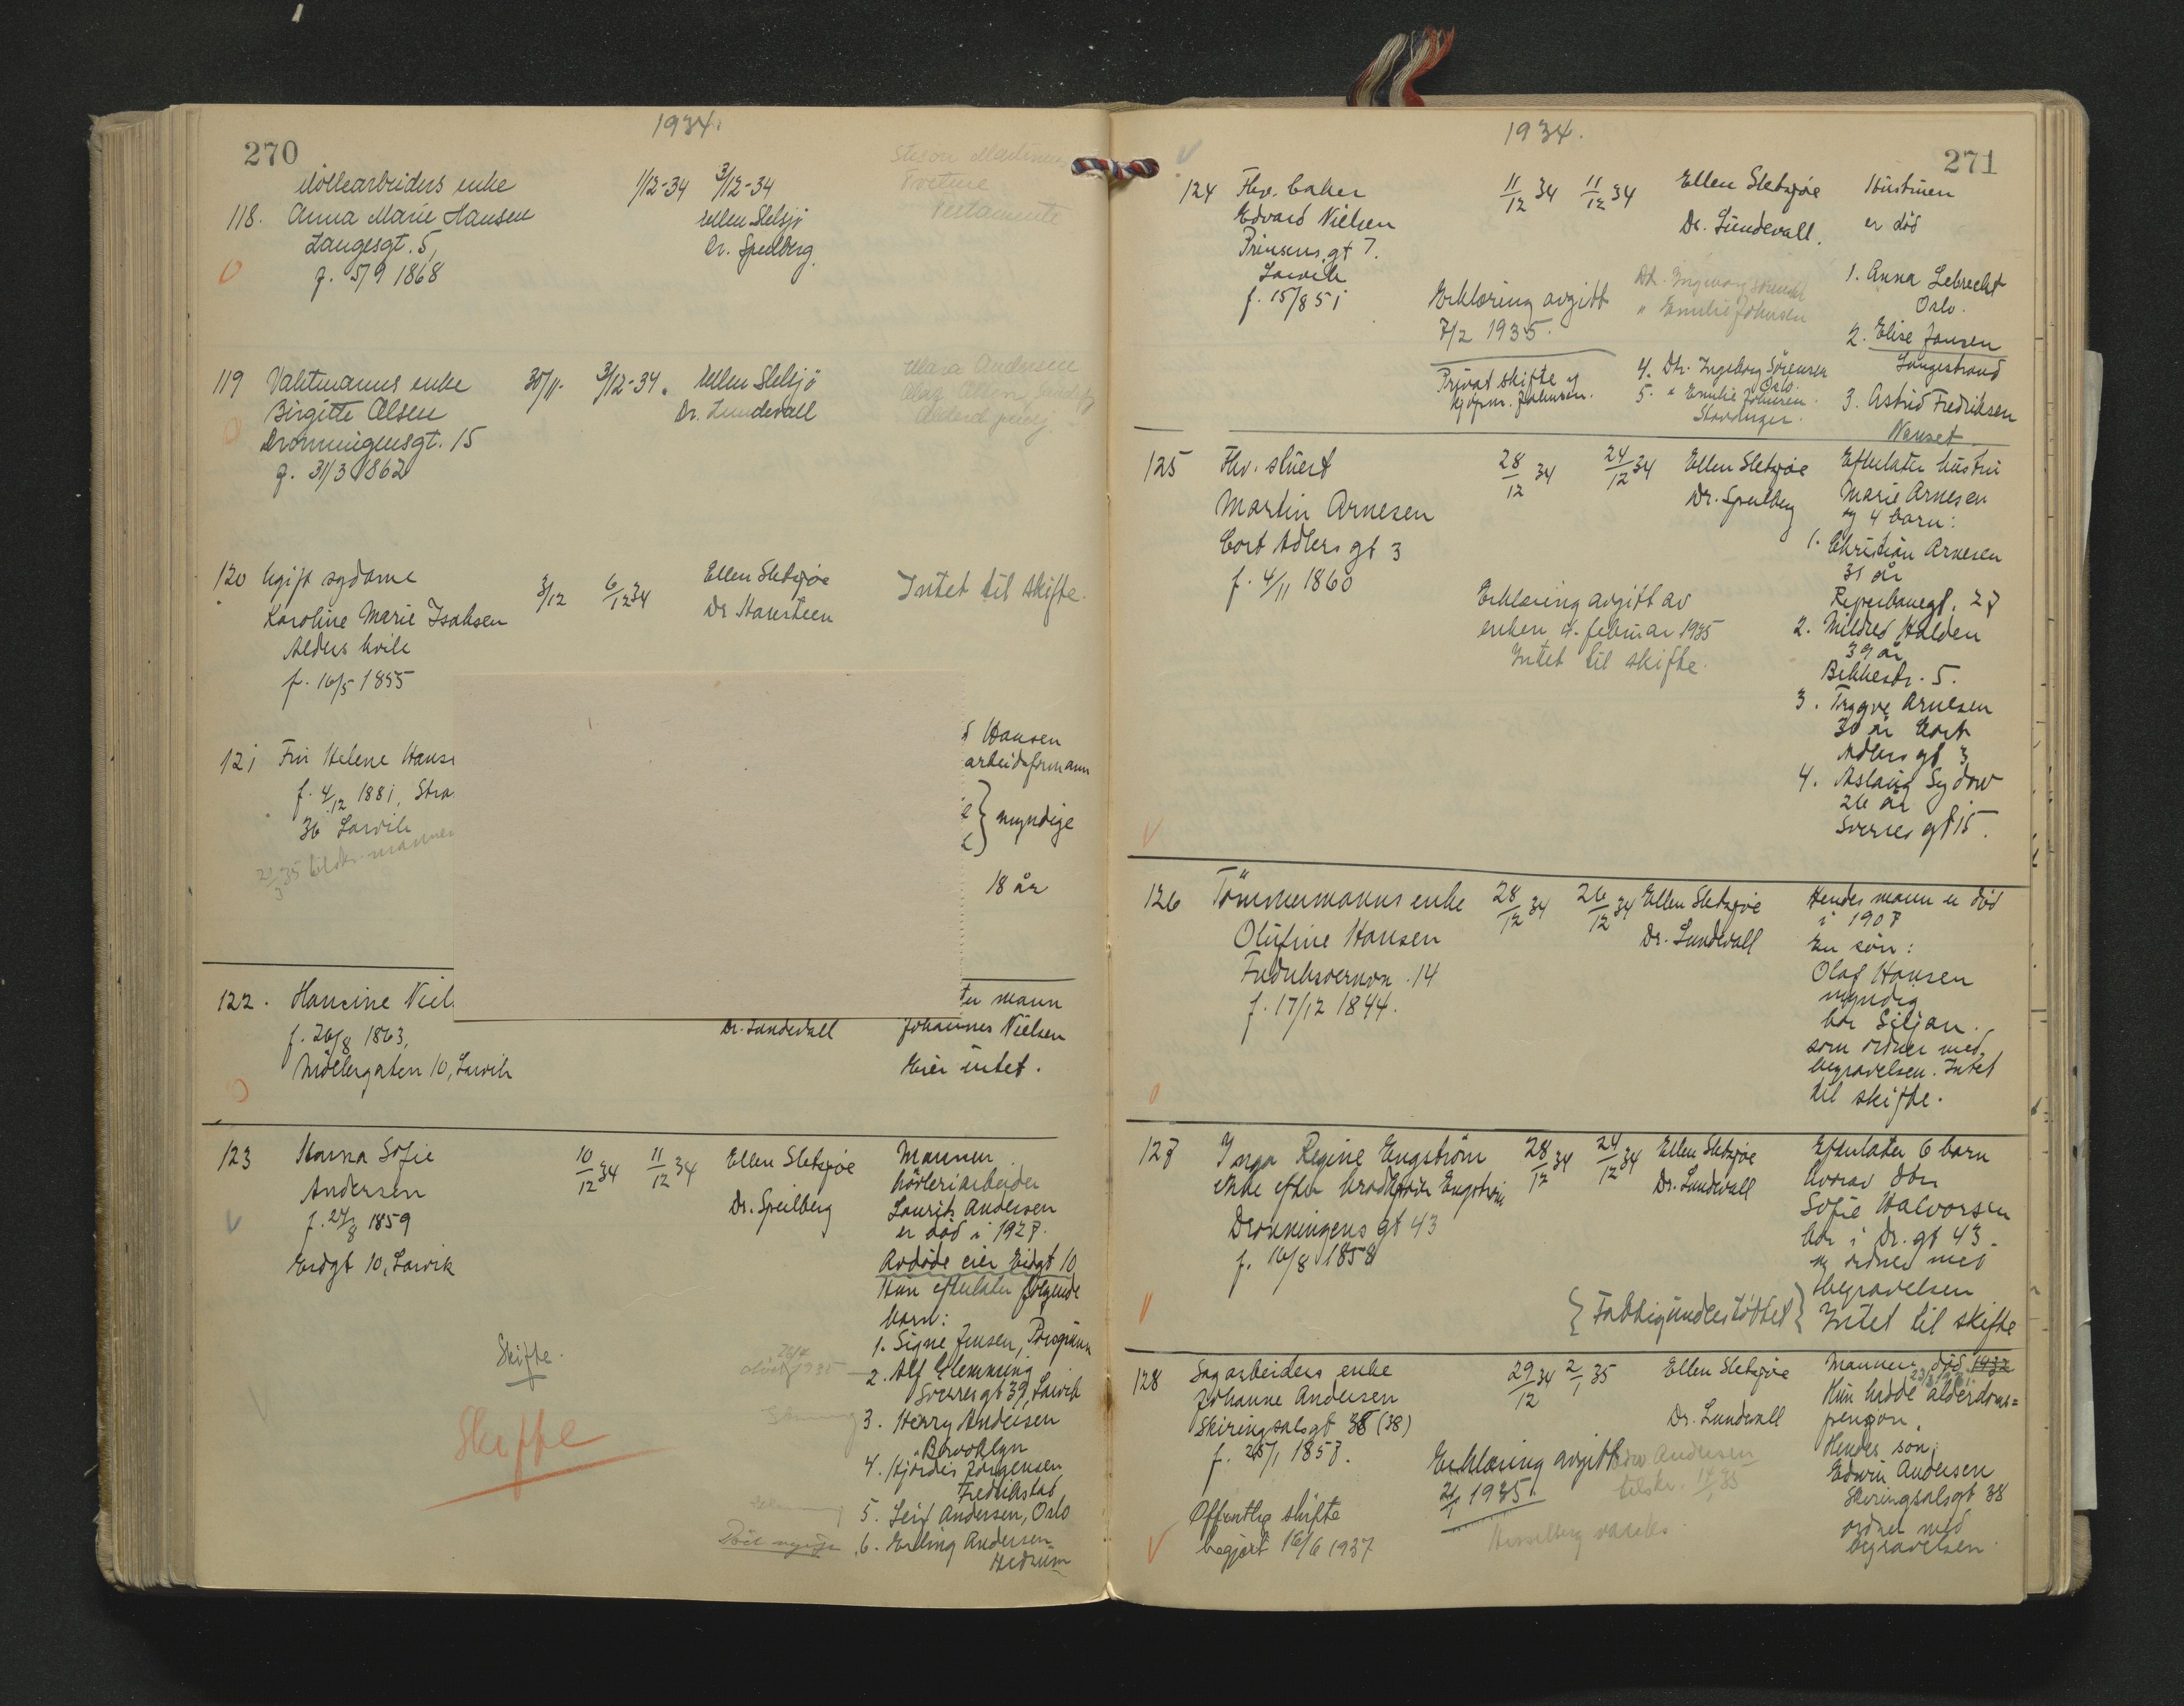 270
1934.
Møllearbeiders enke
118. Anna Marie Hansen
Langesgt. 5,
f. 5/9 1868
1/12-34 3/12-34
Ellen Sletsjö
Dr. Speilberg.
Testamente
119 Vaktmanns enke
Birgitte Olsen
Dronningensgt. 15
f. 31/3 1862
30/11- 3/12-34.
Ellen Sletsjö
Dr. Lundevall
Klara Andresen
120 Ugift sydame
Karoline Marie Isaksen
Alders hvile
f. 16/5 1855
3/12 6/12 34
Ellen Sletsjøe
Dr Hansteen
Intet til skifte.
121 Fru Helene Hans
f. 4/12 1881, Stra
36 Larvik
Hansen
arbeidsformann
} myndige
18 år
122. Hansine Niel
f. 26/8 1863,
Möllergaten 10, Larvik
Dr. Lundevall
mann
Johannes Nielsen
Eier intet.
123 Hanna Sofie
Andersen
f. 27/8 1859
Eidgt 10, Larvik
10/12 34 11/12 34
Ellen Sletsjøe
Dr. Speilberg
Mannen
høvleriarbeider
Laurits Andersen
er død i 1927.
Avdöde eier Eidgt 10
Hun efterlater følgende
barn:
1. Signe Jensen, Porsgrunn
2. Alf Glemming
Sverresgt 39, Larvik
3. Henry Andersen
Brooklyn
4. Hjördis Jörgensen
Fredrikstad
5. Leif Andersen, Oslo
6. Erling Andersen
Hedrum
Skifte.
Skifte
271
1934.
124 Fhv. baker
Edvard Nielsen
Prinsens gt 7.
Larvik
f. 15/8 51
11/12 34 11/12 34
Ellen Sletsjøe
Dr. Lundevall.
Hustruen
er död
1. Anna Lebrecht
Oslo.
2. Elise Jansen
Langestrand
3. Astrid Fredriksen
Nanset.
Dtr. Ingeborg Sörensen
" Emilie Johnsen
4. Dtr. Ingeborg Sörensen
Oslo.
5. " Emilie Johnsen
Stavanger.
Erklæring avgitt
7/2 1935.
Privat skifte v
kjøpm. Johnsen.
125 Fhv. stuert
Martin Arnesen
Cort Adlers gt 3
f. 4/11 1860
28/12 34 24/12 34
Ellen Sletsjøe
Dr. Speilberg
Erklæring avgitt av
enken 4. februar 1935
Intet til skifte.
Efterlater hustru
Marie Arnesen
og 4 barn:
1. Christian Arnesen
31 år
Reperbanegt. 27
2. Mildred Halden
39 år
Bekkestr. 5.
3. Trygve Arnesen
30 år Cort
Adlers gt 3
4. Aslaug Sydow
26 år
Sverres gt 15.
126 Tömmermanns enke
Olufine Hansen
Fredriksvernvn. 14
f. 17/12 1844.
28/12 34 26/12 34
Ellen Sletsjøe
Dr. Lundevall
Hendes mann er död
i 1907
En sön:
Olaf Hansen
myndig
bor Siljan.
som ordner med
begravelsen. Intet
til skifte.
127 Inga Regine Engström
enke efter
Dronningens gt 43
f. 16/8 1858
28/12 34 24/12 34
Ellen Sletsjøe
Dr. Lundevall
{Fattigunderstöttet}
Efterlater 6 barn
hvorav dtr
Sofie Halvorsen
bor i Dr. gt 43.
og ordner med
begravelsen
Intet til skifte
128 Sagarbeiders enke
Johanne Andersen
Skiringsalsgt 38 (38)
f. 25/1 1857.
29/12 34 2/1 35
Ellen Sletsjøe
Dr. Lundevall
Erklæring avgitt
21/1 1935.
Offentlig skifte
begjært 16/6 1937
Mannen död 1932
Hun hadde alderdoms=
pensjon.
Hendes sön:
Edwin Andersen
Skiringsalsgt 38
ordner med
begravelsen.